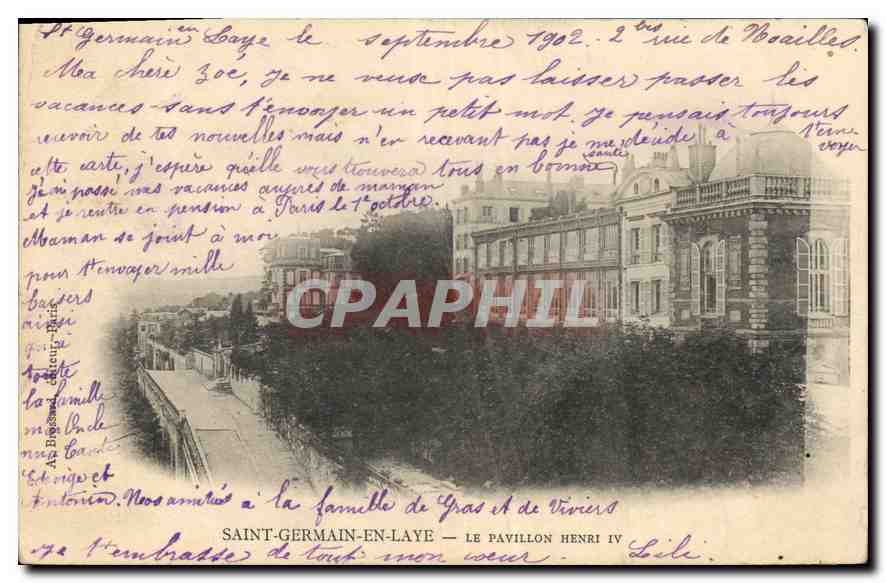 St Germain en Laye le septembre 1902. 2 bis rue de Noailles.
Ma chère Zoé, je ne veux pas laisser passer les
vacances sans t'envoyer un petit mot. je pensais toujours
recevoir de tes nouvelles mais n'en recevant pas je me décide à t'envoyer
cette carte, j'espère qu'elle vous trouvera tous en bonne santé
j'ai passé mes vacances auprès de maman
et je rentre en pension à Paris le 1e octobre.
Maman se joint à moi
pour t'envoyer mille
baisers
ainsi
qu'a
toute
la famille
mon Oncle
ma Tante
Edvige et
Antonin. Nos amitiés à la famille de Gras et de Viviers
je t'embrasse de tout mon coeur. Lili
A. Brossard, éditeur, Paris
CPAPHIL
SAINT-GERMAIN-EN-LAYE — LE PAVILLON HENRI IV